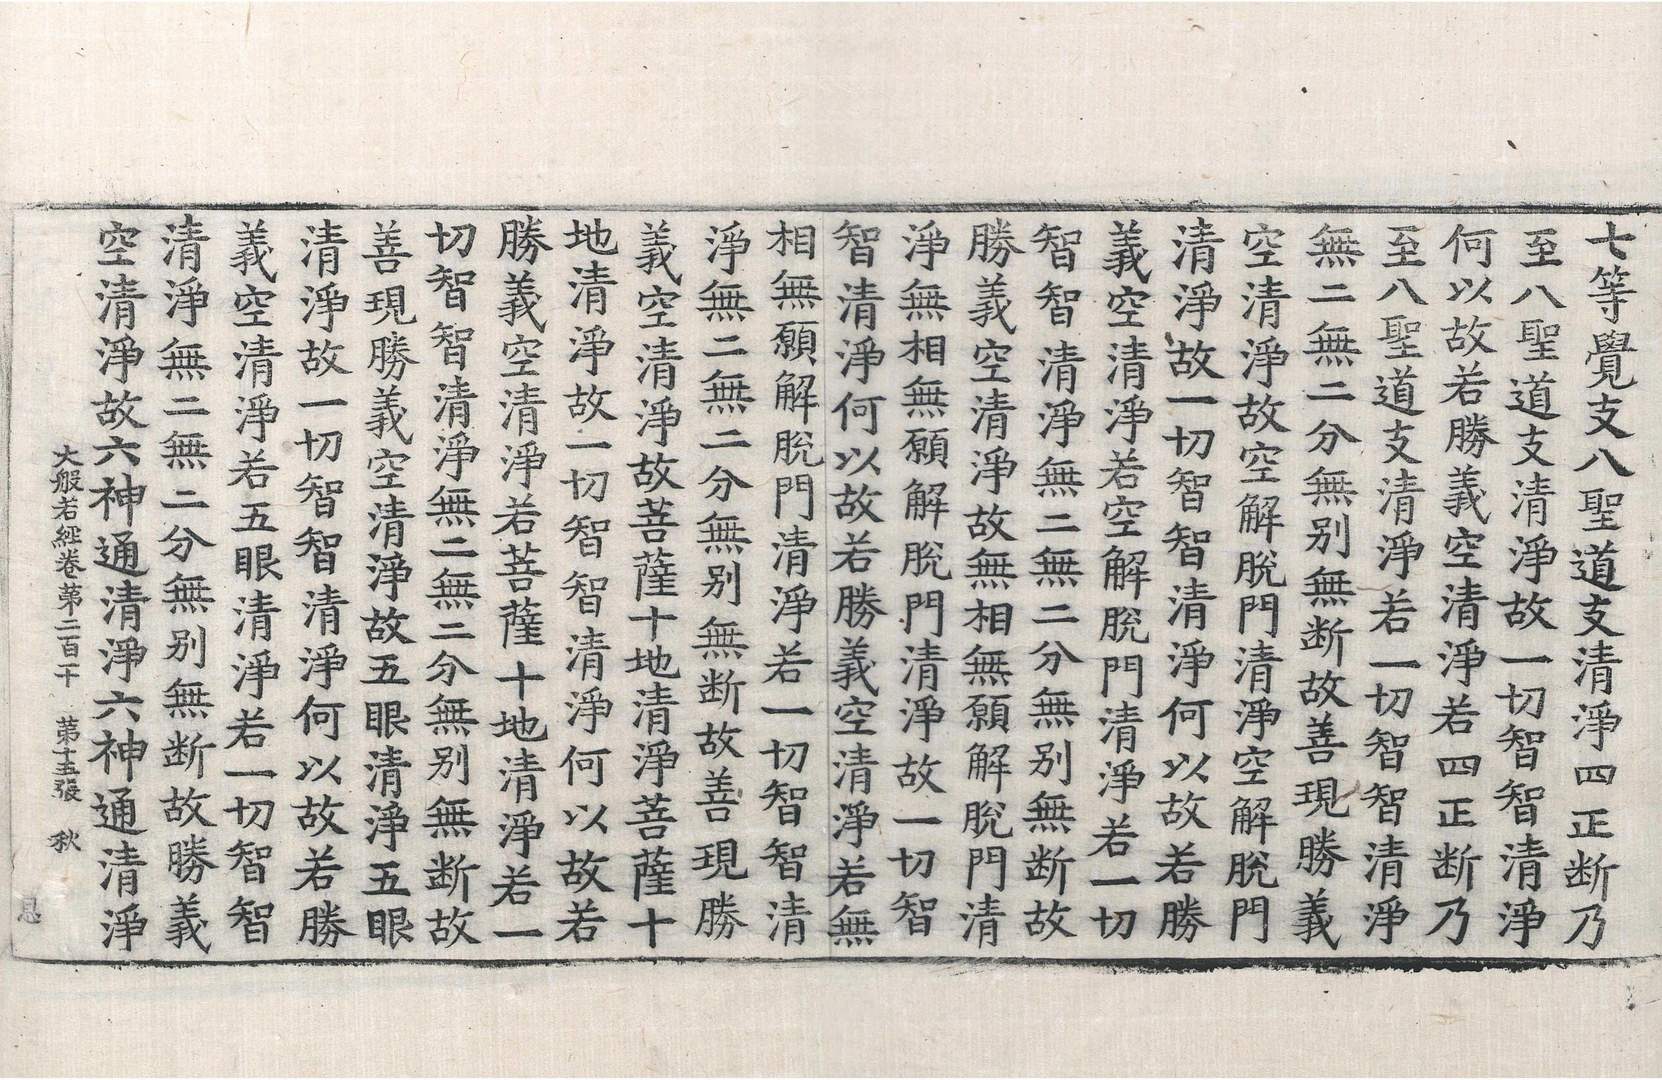 七等覺支八聖道支清淨四正断乃
至八聖道支清淨故一切智智清淨
何以故若勝義空清淨若四正断乃
至八聖道支清淨若一切智智清淨
無二無二分無别無断故善現勝義
空清淨故空解脫門清淨空解脫門
清淨故一切智智清淨何以故若勝
義空清淨若空解脫門清淨若一切
智智清淨無二無二分無别無断故
勝義空清淨故無相無願解脫門清
淨無相無願解脫門清淨故一切智
智清淨何以故若勝義空清淨若無
相無願解脫門清淨若一切智智清
淨無二無二分無别無断故善現勝
義空清淨故菩薩十地清淨菩薩十
地清淨故一切智智清淨何以故若
勝義空清淨若菩薩十地清淨若一
切智智清淨無二無二分無别無断故
善現勝義空清淨故五眼清淨五眼
清淨故一切智智清淨何以故若勝
義空清淨若五眼清淨若一切智智
清淨無二無二分無别無断故勝義
空清淨故六神通清淨六神通清淨
大般若經卷第二百十 第十五張 秋